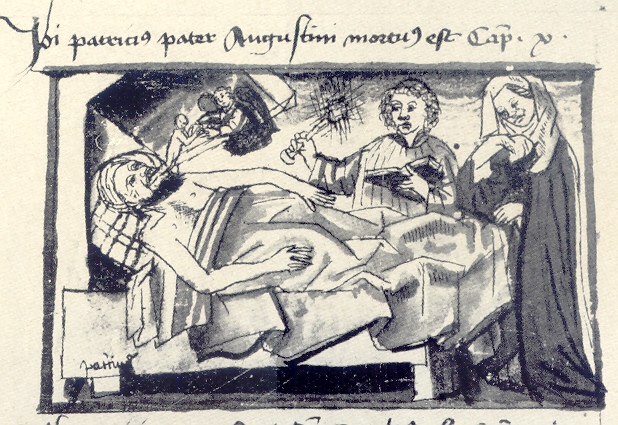 Ubi patricius pater Augustini mortuus est Cap. x.
patricius